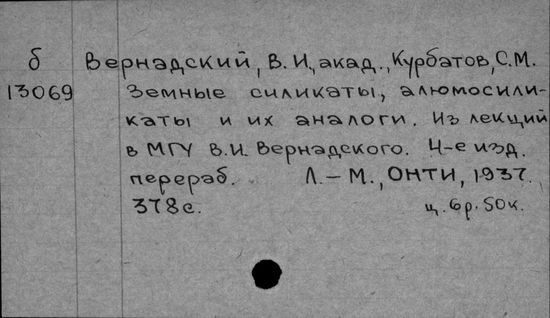 б Вернадский, В. И., акад., Курбатов, С.М.
13069 Земные силикаты, алюмосили-
каты и их аналоги. Из лекций
в МГУ В.И. Вернадского. 4-е изд.
перераб. Л.–М., ОНТИ, 1937.
378с. ц. 6р. 50к.